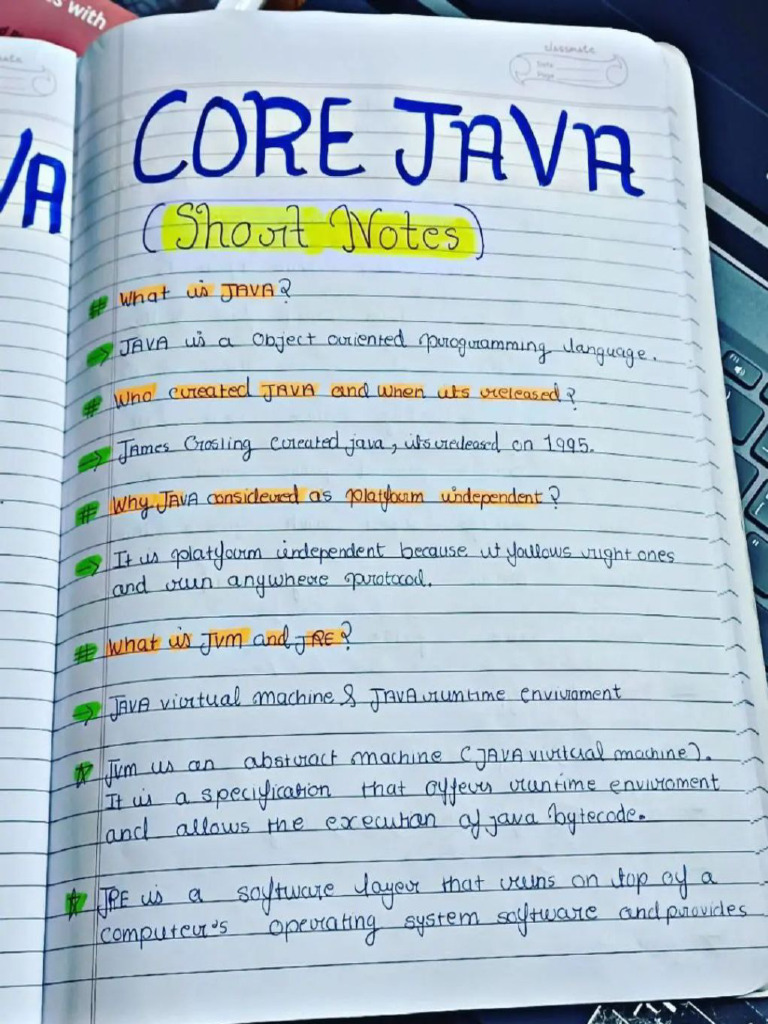 s with
classmate
Date
Page
VA
CORE JAVA
(Short Notes)
# What is JAVA?
→ JAVA is a Object oriented programming language.
# Who created JAVA and when its released?
→ James Grosling created java, its released on 1995.
# Why JAVA considered as platform independent?
→ It is platform independent because it follows right ones
and run anywhere protocol.
# What is Jvm and JRE?
→ JAVA virtual machine & JAVA runtime enviroment
☆ Jvm is an abstract machine (JAVA virtual machine).
It is a specification that offers runtime enviroment
and allows the execution of java bytecode.
☆ JRE is a software layer that runs on top of a
computer's operating system software and provides